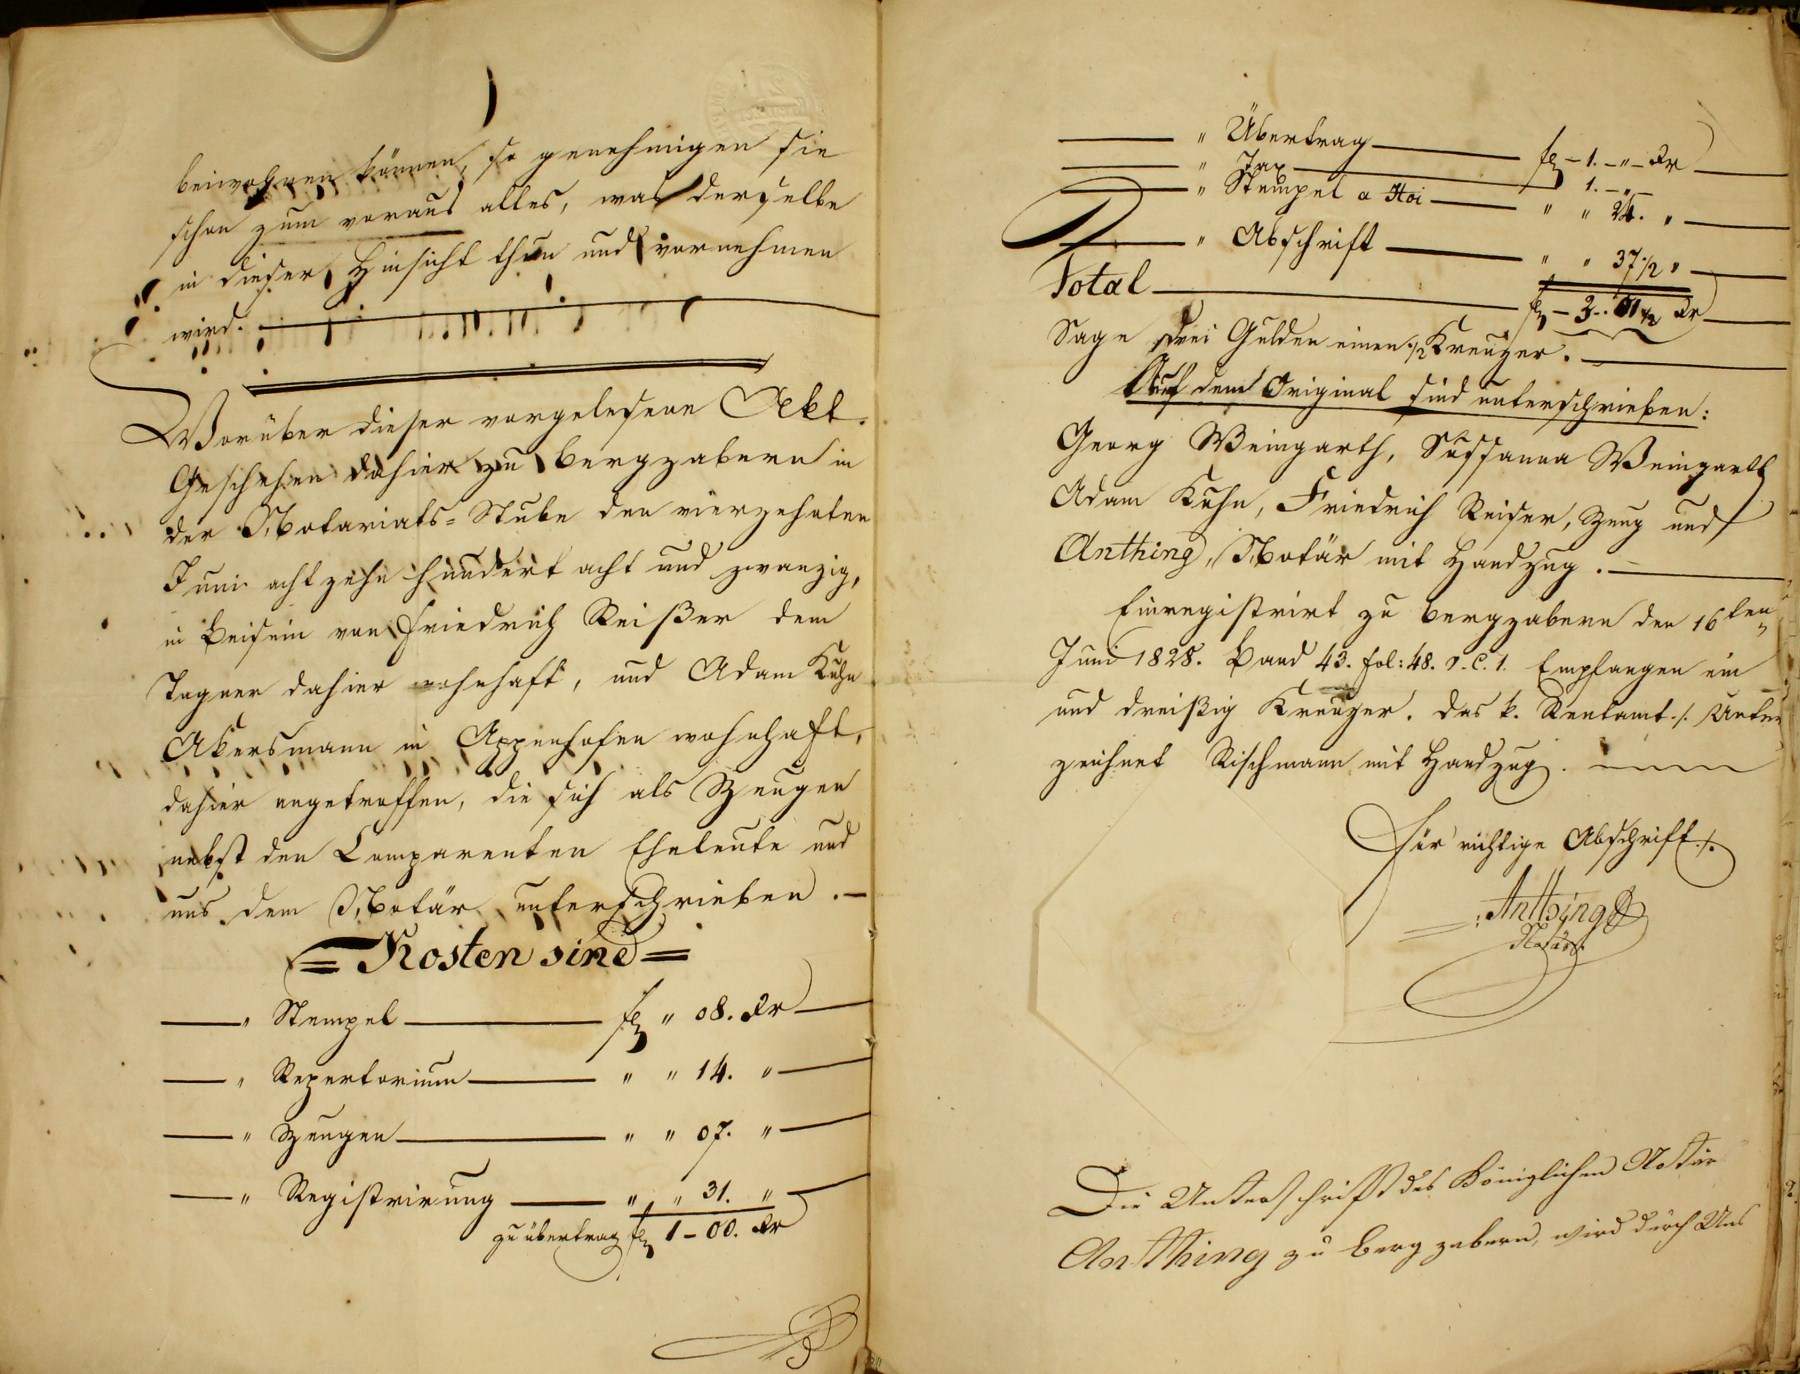 beiwohnen können, so genehmigen sie
schon zum voraus alles, was derselbe
in dieser Hinsicht thun und vornehmen
wird.
Worüber dieser vorgelesene Ackt.
Geschehen dahier zu Bergzabern in
der Notariats=Stube den vierzehnten
Juni achtzehn hundert acht und zwanzig,
in Beisein von Friedrich Reißer dem
Tagner dahier wohnhaft, und Adam Kuhn
Akersmann in Appenhofen wohnhaft,
dahier angetroffen, die sich als Zeugen
nebst den Comparenten Eheleute und
uns dem Notär unterschrieben. —
= Kosten sind =
— " Stempel — f " 08. Kr —
— " Repertorium — " " 14. " —
— " Zeugen — " " 07. " —
— " Registrirung — " " 31. " —
zu übertrag f 1 – 00. Kr
— " Übertrag — f – 1. – " – Kr —
— " Tax — 1. – "
— " Stempel a — " " 24. " —
— " Abschrift — " " 37 1/2 " —
Total — f – 3 – 01 1/2 Kr —
Sage Drei Gulden einen 1/2 Kreuzer. —
Auf dem Original sind unterschrieben:
Georg Weingarth, Sussanna Weingarth
Adam Kuhn, Friedrich Reiser, Zeug und
Anthing, Notär mit Handzug. —
Einregistrirt zu Bergzabern den 16ten
Juni 1828. Band 43. fol: 48. v. C. 1. Empfangen ein
und dreißig Kreuzer. Das k. Rentamt ./. Unter
zeichnet Rischmann mit Handzug.
Für richtige Abschrift ./.
Anthing
Notär.
Die Unterschrift des Königlichen Notär
Anthing zu Bergzabern, wird durch Uns